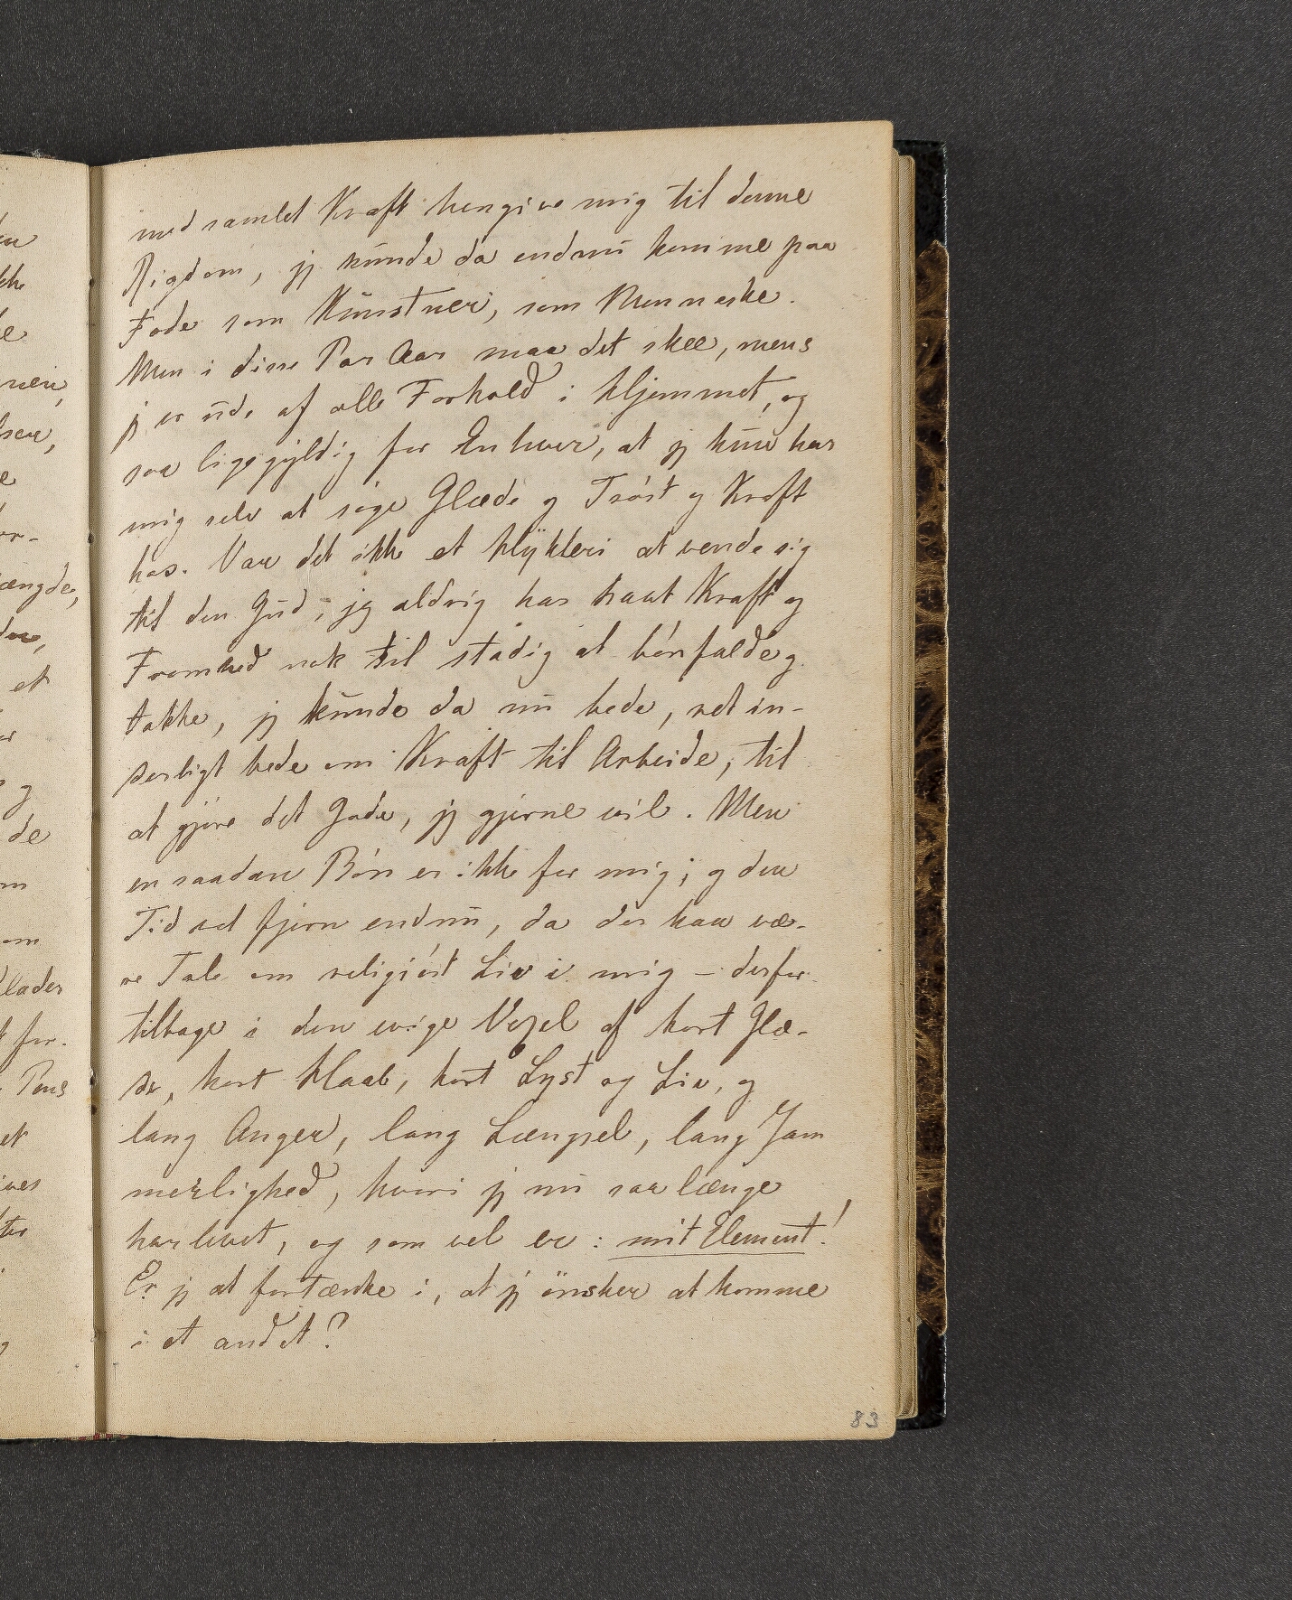 med samlet Kraft hengive mig til denne
Rigdom, jeg kunde da endnu komme paa
Fode som Kunstner, som Menneske.
Men i disse Par Aar maa det skee, mens
jeg er ude af alle Forhold i Hjemmet, og
saa ligegyldig for Enhver, at jeg kun har
mig selv at søge Glæde og Trøst og Kraft
hos. Var det ikke et Hykleri at vende sig
til den Gud, jeg aldrig har havt Kraft og
Fromhed nok til stadig at bønfalde og
takke, jeg kunde da nu bede, ret in-
derligt bede om Kraft til Arbeide, til
at gjøre det Gode, jeg gjerne vil. Men
en saadan Bøn er ikke for mig; og den
Tid vel fjern endnu, da der kan væ-
re Tale om religiøst Liv i mig – derfor
tilbage i den evige Vexel af kort Glæ-
de, kort Haab, kort Lyst og Liv, og
lang Anger, lang Længsel, lang Jam
merlighed, hvori jeg nu saa længe
har levet, og som vel er: mit Element!
Er jeg at fortænke i, at jeg ønsker at komme
i et andet?
83